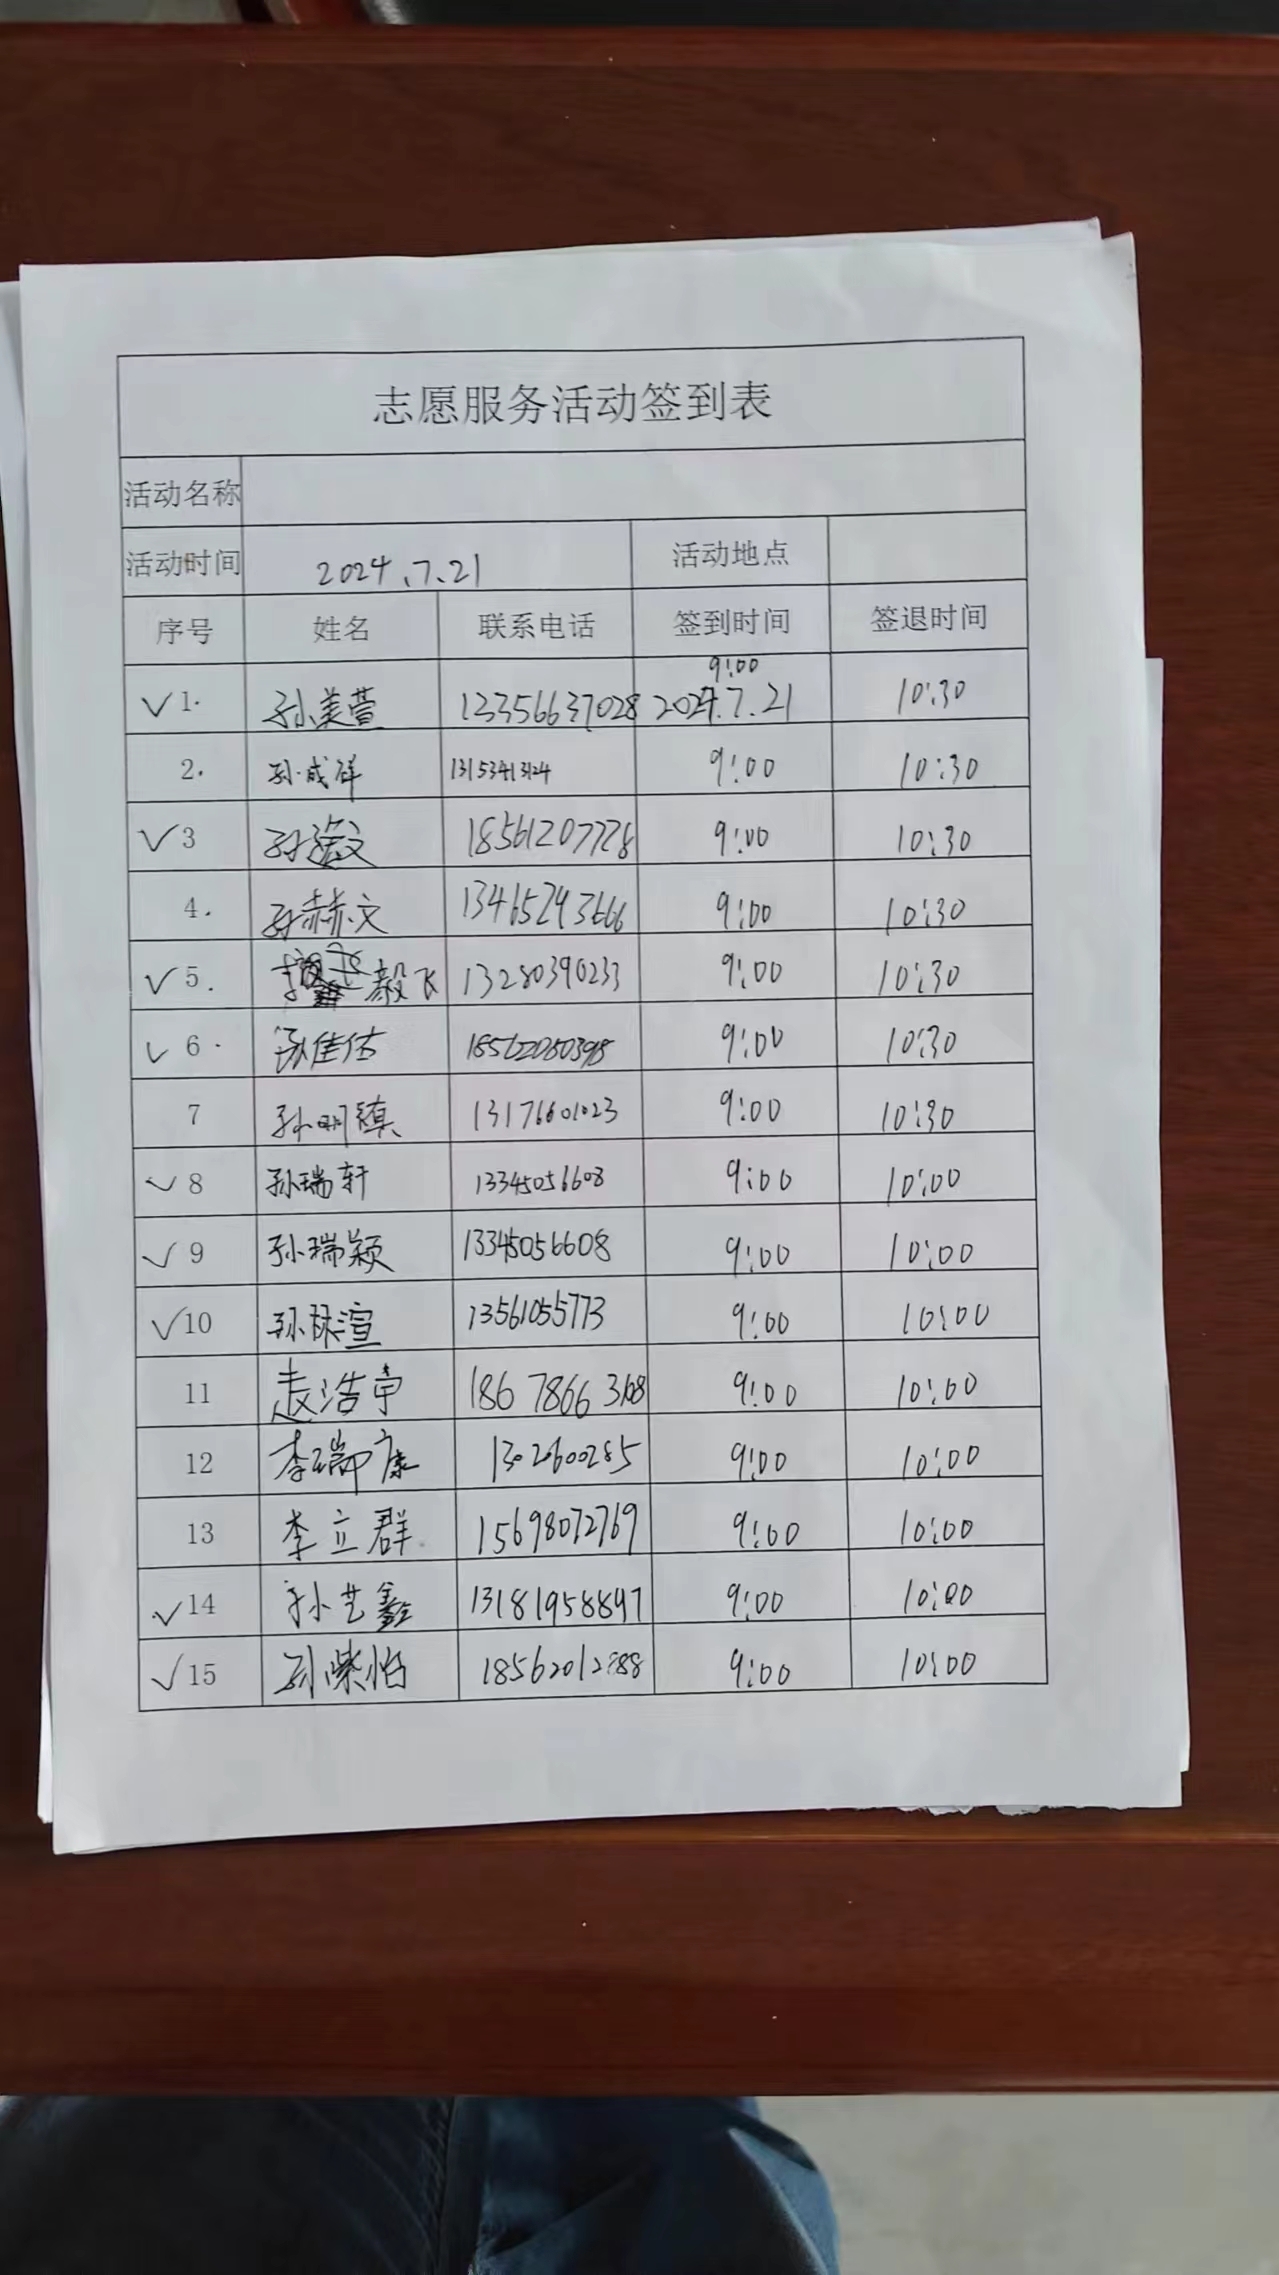 志愿服务活动签到表
活动名称
活动时间 2024.7.21 活动地点
序号 姓名 联系电话 签到时间 签退时间
9:00
✓1. 孙美萱 13356637028 2024.7.21 10:30
2. 孙成祥 9:00 10:30
✓3 18561207778 9:00 10:30
4. 孙赫文 13465293666 9:00 10:30
✓5. 毅飞 13280390233 9:00 10:30
✓6. 佳佑 9:00 10:30
7 孙明镇 13176601023 9:00 10:30
✓8 孙瑞轩 13345056608 9:00 10:00
✓9 孙瑞颖 13345056608 9:00 10:00
✓10 孙林渲 13561055773 9:00 10:00
11 赵浩宇 9:00 10:00
12 李瑞康 1302600285 9:00 10:00
13 李立群 15698072769 9:00 10:00
✓14 孙艺鑫 13181958897 9:00 10:00
✓15 孙紫怡 9:00 10:00